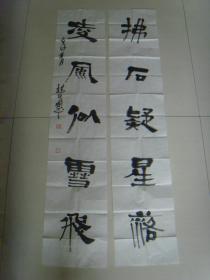 拂石疑星落
凌風似雪飛